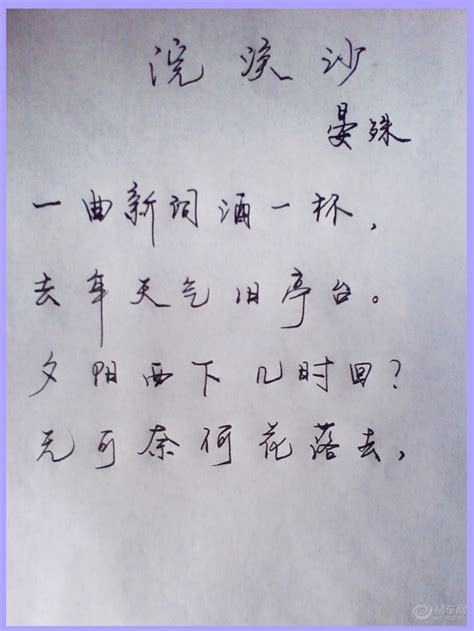 浣溪沙
晏殊
一曲新词酒一杯,
去年天气旧亭台。
夕阳西下几时回?
无可奈何花落去,
易车网